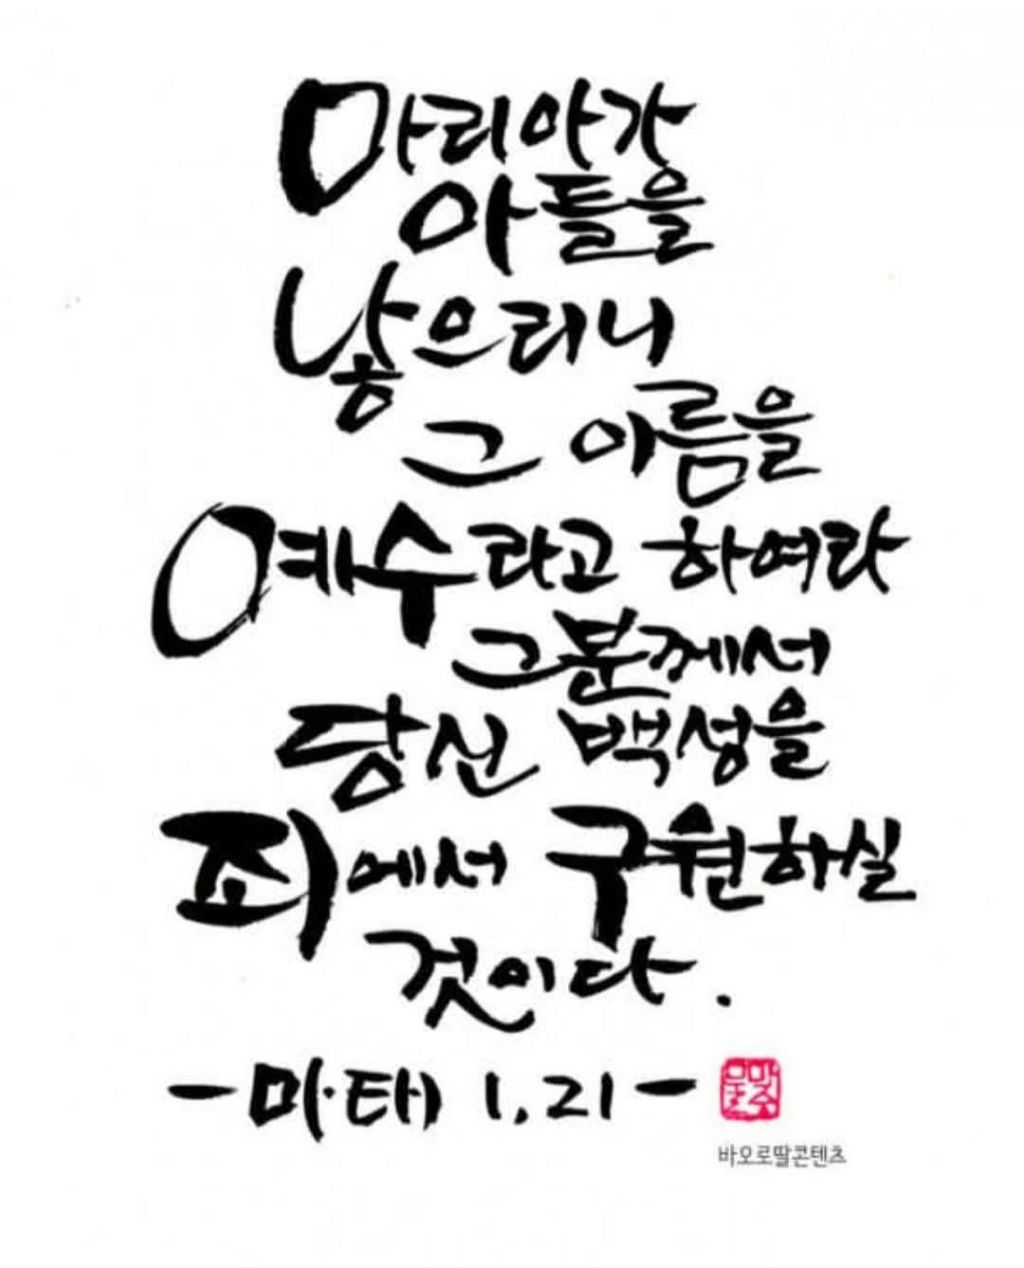 마리아가
아들을
낳으리니
그 이름을
예수라고 하여라
그분께서
당신 백성을
죄에서 구원하실
것이다.
-마태 1.21-
바오로딸콘텐츠